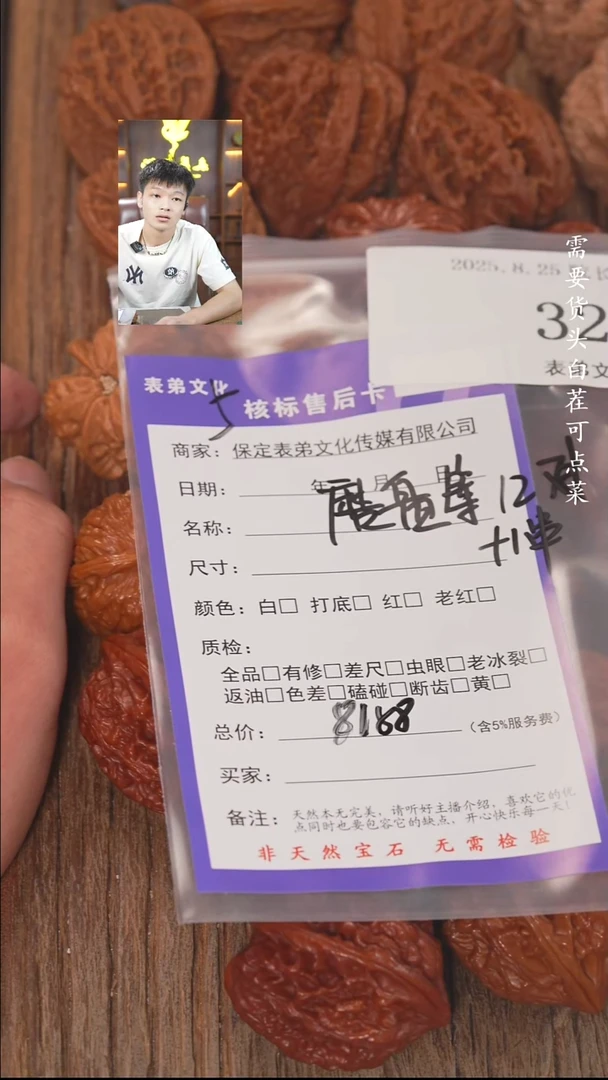 2025.8.25
32
表弟文
需要货头白茬可点菜
表弟文化
5
核标售后卡
商家：保定表弟文化传媒有限公司
日期：年 月 日
名称：
12对
+1串
尺寸：
颜色：白□ 打底□ 红□ 老红□
质检：
全品□有修□差尺□虫眼□老冰裂□
返油□色差□磕碰□断齿□黄□
总价：8188（含5%服务费）
买家：
备注：天然本无完美，请听好主播介绍，喜欢它的优
点同时也要包容它的缺点，开心快乐每一天！
非天然宝石 无需检验